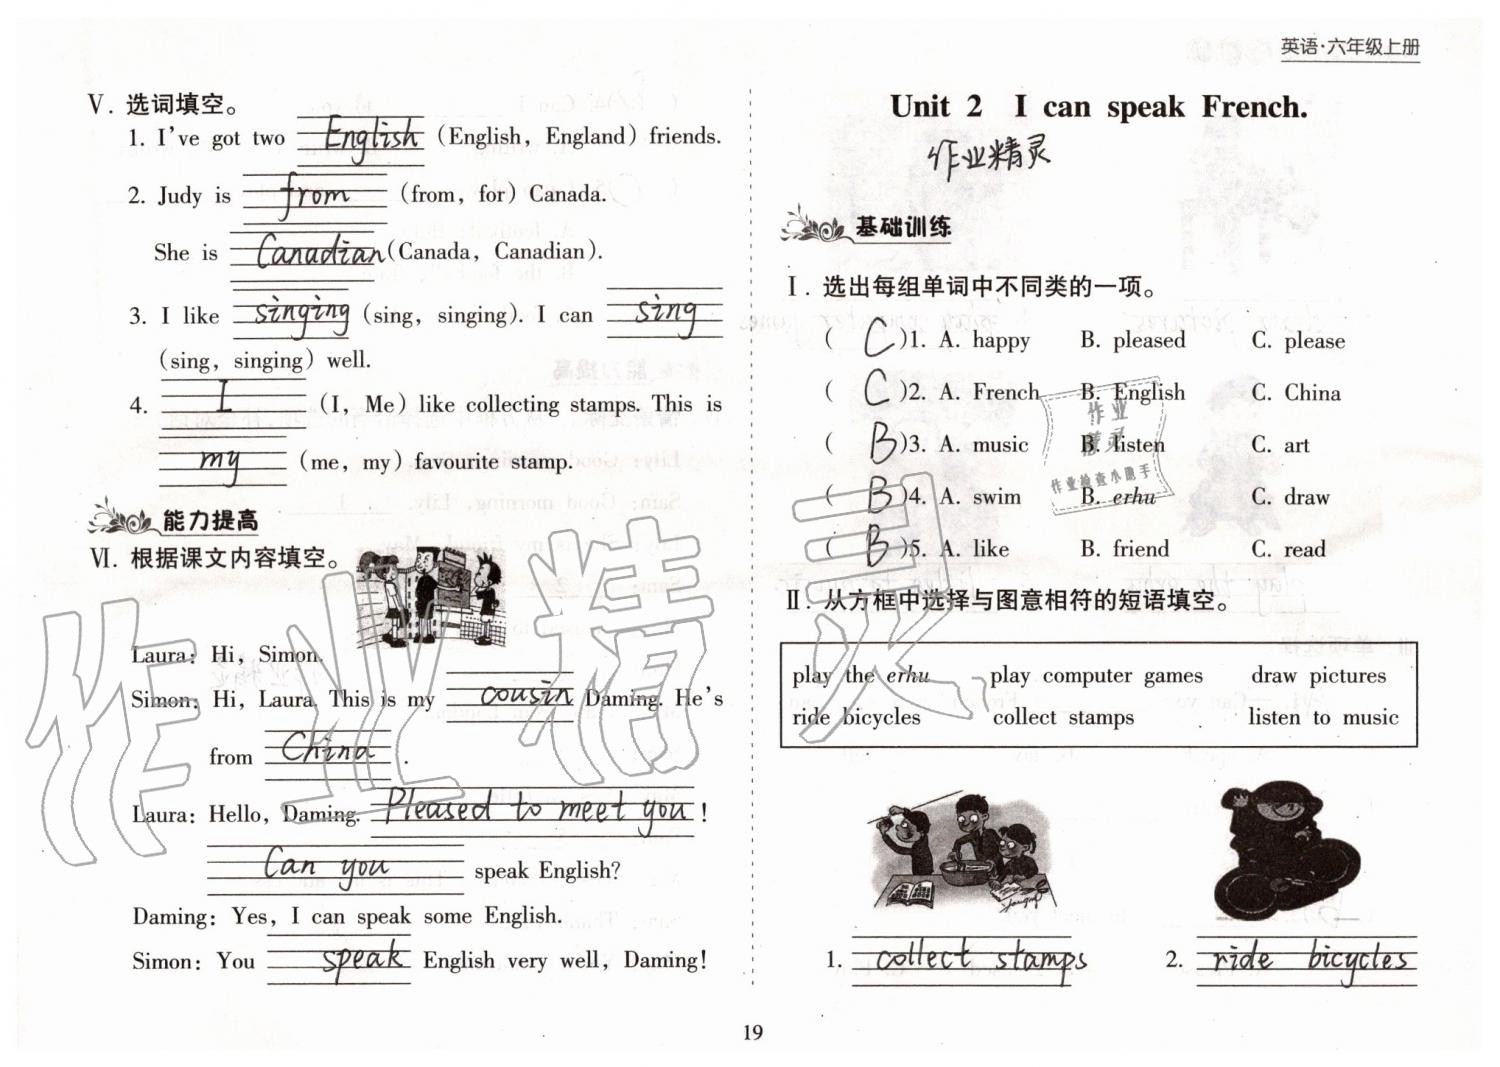 英语·六年级上册
Ⅴ. 选词填空。
1. I've got two English (English, England) friends.
2. Judy is from (from, for) Canada.
She is Canadian (Canada, Canadian).
3. I like singing (sing, singing). I can sing
(sing, singing) well.
4. I (I, Me) like collecting stamps. This is
my (me, my) favourite stamp.
能力提高
Ⅵ. 根据课文内容填空。
Laura: Hi, Simon.
Simon: Hi, Laura. This is my cousin Daming. He's
from China .
Laura: Hello, Daming. Pleased to meet you!
Can you speak English?
Daming: Yes, I can speak some English.
Simon: You speak English very well, Daming!
Unit 2 I can speak French.
作业精灵
基础训练
Ⅰ. 选出每组单词中不同类的一项。
( C )1. A. happy B. pleased C. please
( C )2. A. French B. English C. China
( B )3. A. music B. listen C. art
( B )4. A. swim B. erhu C. draw
( B )5. A. like B. friend C. read
作业
精灵
作业检查小助手
Ⅱ. 从方框中选择与图意相符的短语填空。
play the erhu play computer games draw pictures
ride bicycles collect stamps listen to music
1. collect stamps 2. ride bicycles
19
作业精灵